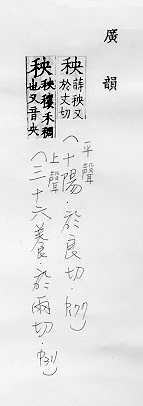 廣韻
秧 蒔秧又
於丈切
平聲
(十陽·於良切·P177)
秧 秧穰禾稠
也又音央
上聲
(三十六養·於兩切·P311)